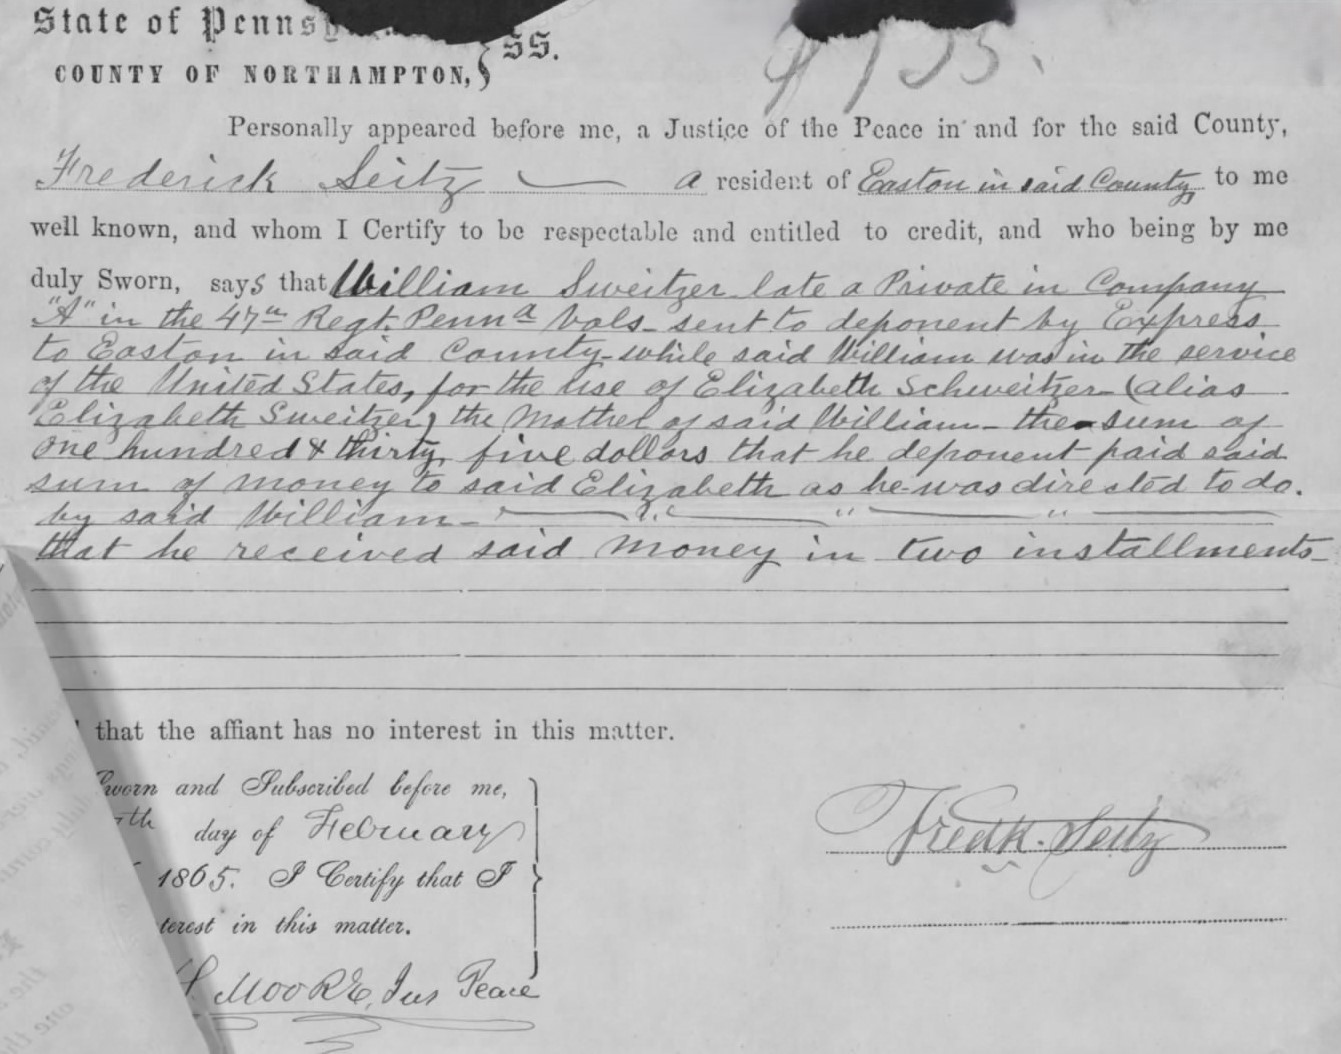 State of Pennsy
SS.
COUNTY OF NORTHAMPTON,
Personally appeared before me, a Justice of the Peace in and for the said County,
Frederick Seitz a resident of Easton in said County to me
well known, and whom I Certify to be respectable and entitled to credit, and who being by me
duly Sworn, says that William Sweitzer late a Private in Company
"A" in the 47th Regt. Penna Vols - sent to deponent by Express
to Easton in said County - while said William was in the service
of the United States, for the use of Elizabeth Schweitzer (alias
Elizabeth Sweitzer) the Mother of said William - the sum of
one hundred & thirty five dollars that he deponent paid said
sum of money to said Elizabeth as he was directed to do.
by said William -
that he received said money in two installments -
that the affiant has no interest in this matter.
Sworn and Subscribed before me,
th day of February
1865. I Certify that I
terest in this matter.
Fredk. Seitz
H. MOORE, Jus Peace